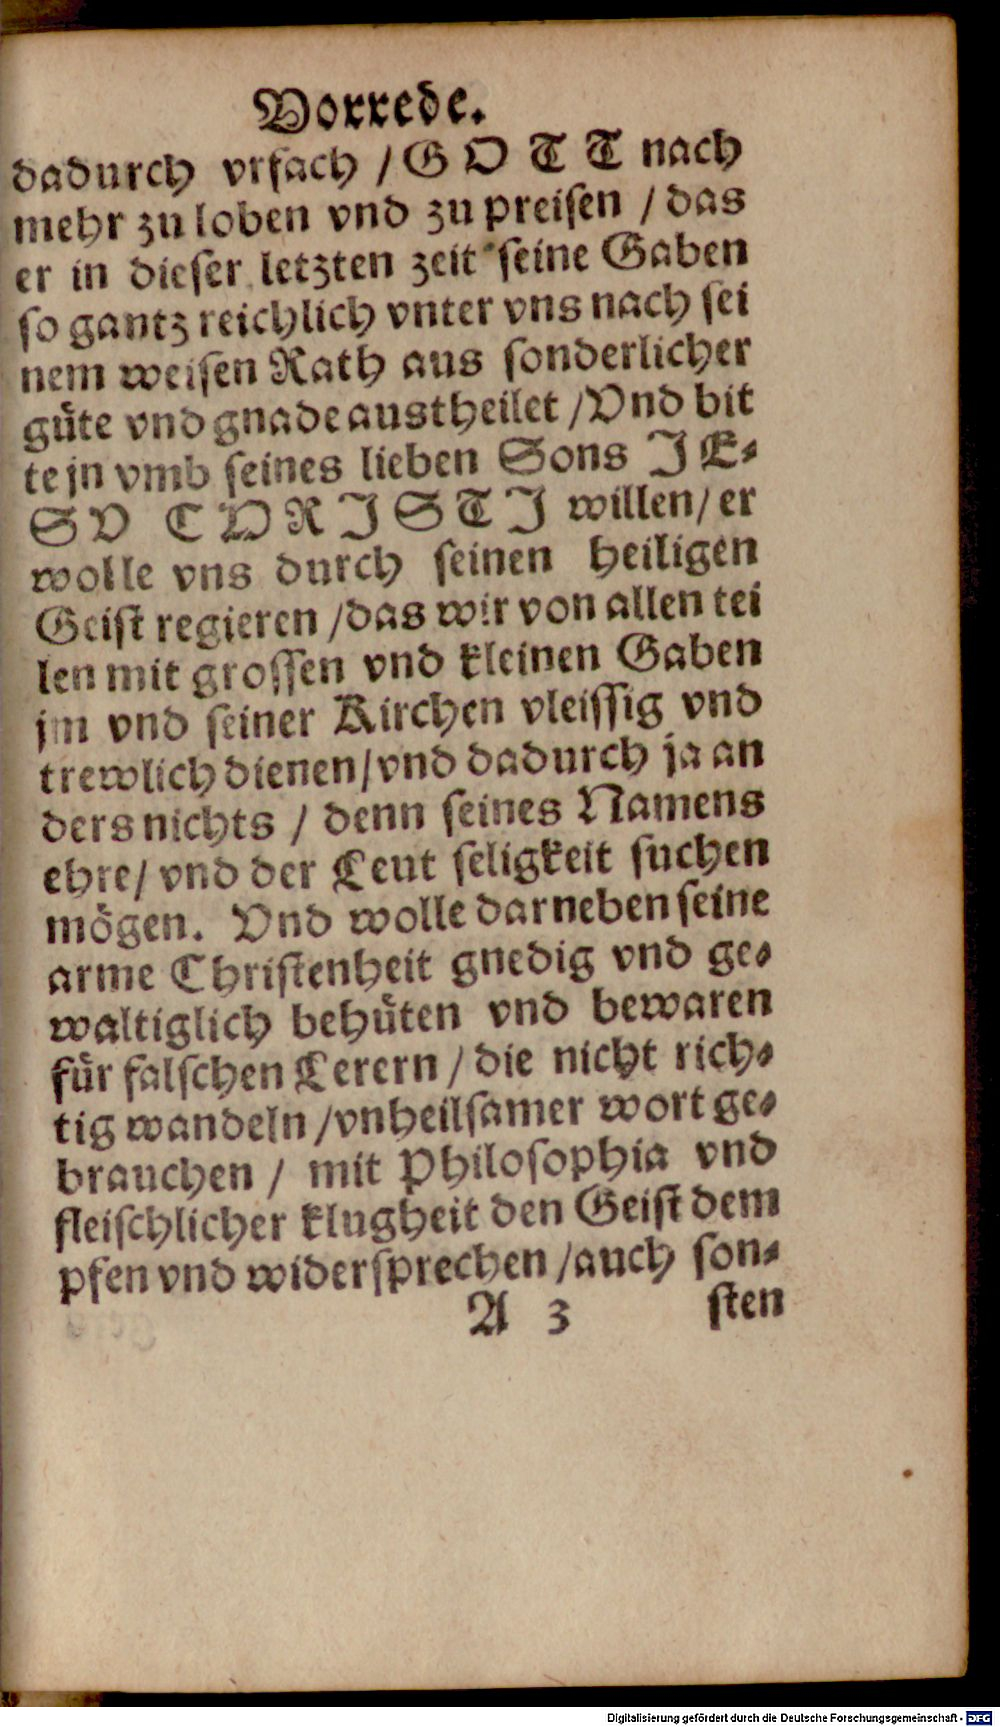 Vorrede.
dadurch vrsach / G O T T nach
mehr zu loben vnd zu preisen / das
er in dieser letzten zeit seine Gaben
so gantz reichlich vnter vns nach sei
nem weisen Rath aus sonderlicher
güte vnd gnade austheilet / Vnd bit
te jn vmb seines lieben Sons J E-
S V C H R J S T J willen / er
wolle vns durch seinen heiligen
Geist regieren / das wir von allen tei
len mit grossen vnd kleinen Gaben
jm vnd seiner Kirchen vleissig vnd
trewlich dienen / vnd dadurch ja an
ders nichts / denn seines Namens
ehre / vnd der Leut seligkeit suchen
mögen. Vnd wolle darneben seine
arme Christenheit gnedig vnd ge-
waltiglich behüten vnd bewaren
für falschen Lerern / die nicht rich-
tig wandeln / vnheilsamer wort ge-
brauchen / mit Philosophia vnd
fleischlicher klugheit den Geist dem
pfen vnd widersprechen / auch son-
A 3 sten
Digitalisierung gefördert durch die Deutsche Forschungsgemeinschaft - DFG